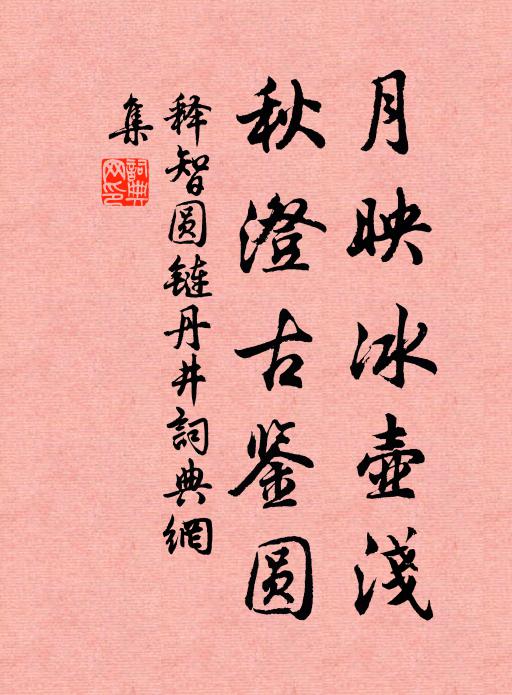 月映冰壶淺
秋澄古鉴圆
释智圆鏈丹井詞典網
集
詞典网印